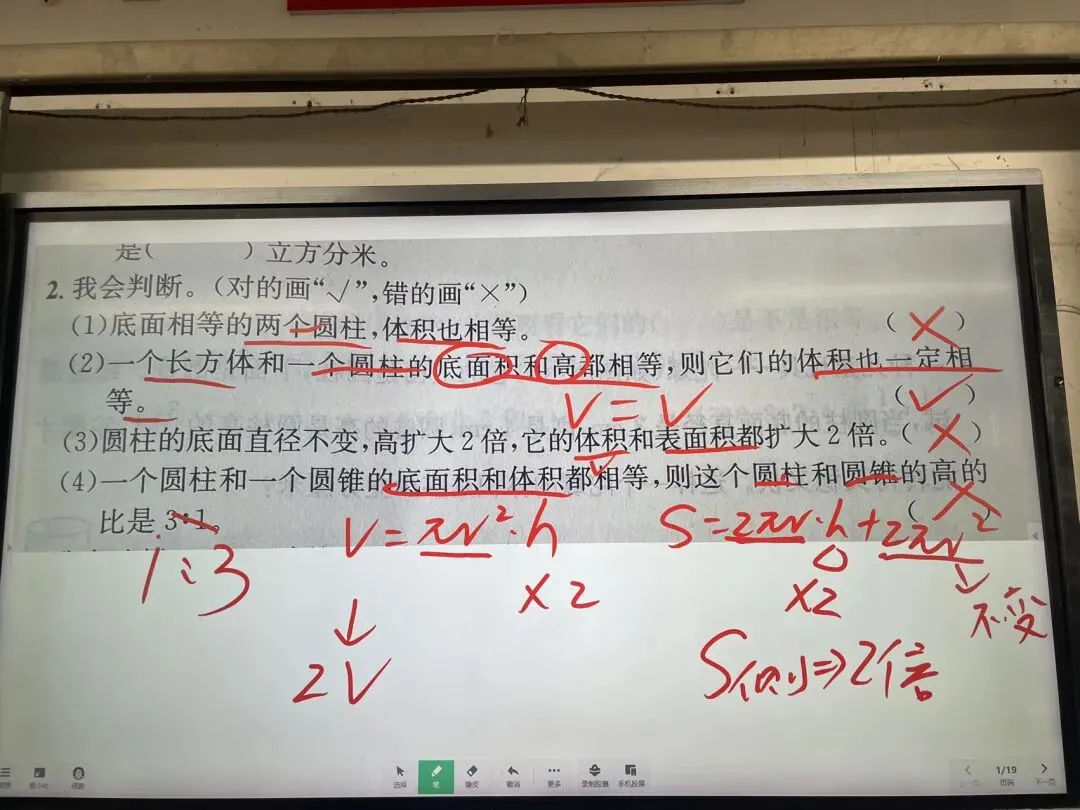 是(    )立方分米。
2. 我会判断。(对的画“√”,错的画“×”)
(1)底面相等的两个圆柱,体积也相等。 (×)
(2)一个长方体和一个圆柱的底面积和高都相等,则它们的体积也一定相
等。 (√)
V=V
(3)圆柱的底面直径不变,高扩大2倍,它的体积和表面积都扩大2倍。(×)
(4)一个圆柱和一个圆锥的底面积和体积都相等,则这个圆柱和圆锥的高的
比是3:1。 (×)
1:3
V=πr²·h
S=2πr·h+2πr²
×2
×2
不变
2V
S侧⇒2倍
选择 笔 橡皮 撤消 更多 录制胶囊 手机投屏
1/19
页码
下一页